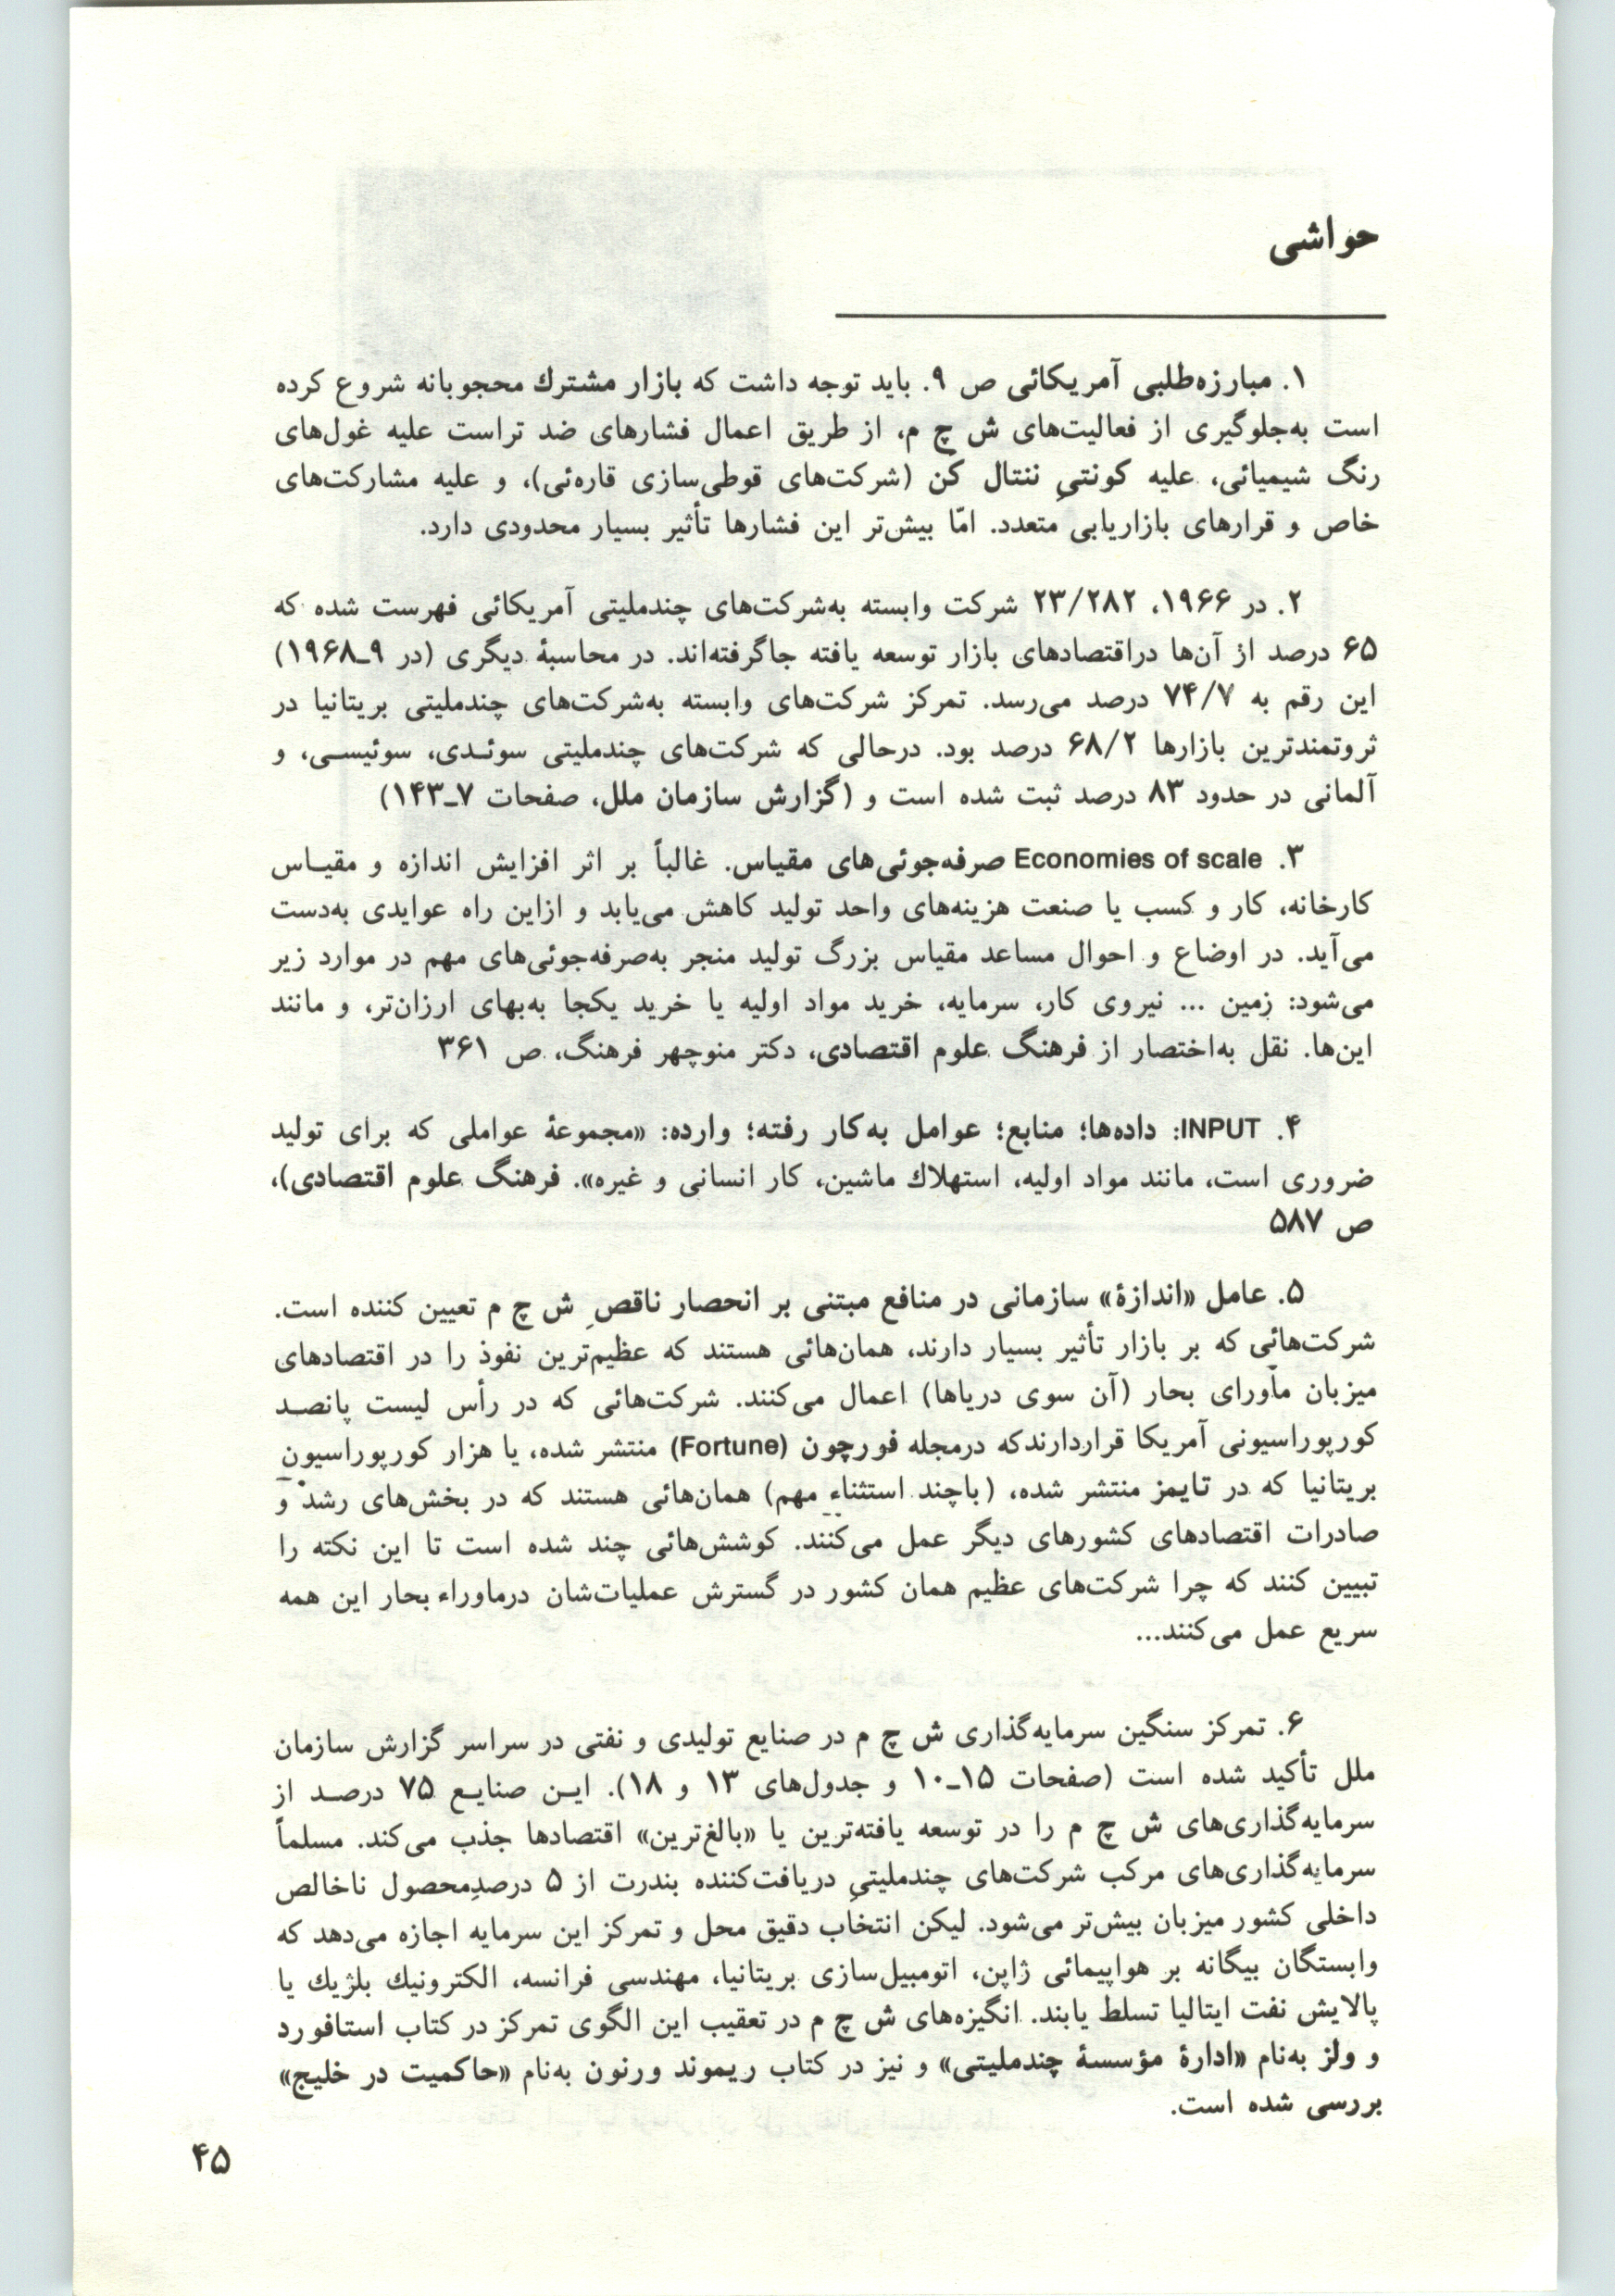 حواشی
۱. مبارزه‌طلبی آمریکائی ص ۹. باید توجه داشت که بازار مشترك محجوبانه شروع کرده
است به‌جلوگیری از فعالیت‌های ش چ م، از طریق اعمال فشارهای ضد تراست علیه غول‌های
رنگ شیمیائی، علیه کونتیِ ننتال کن (شرکت‌های قوطی‌سازی قاره‌ئی)، و علیه مشارکت‌های
خاص و قرارهای بازاریابی متعدد. امّا بیش‌تر این فشارها تأثیر بسیار محدودی دارد.
۲. در ۱۹۶۶، ۲۳/۲۸۲ شرکت وابسته به‌شرکت‌های چندملیتی آمریکائی فهرست شده که
۶۵ درصد از آن‌ها دراقتصادهای بازار توسعه یافته جاگرفته‌اند. در محاسبهٔ دیگری (در ۹ـ۱۹۶۸)
این رقم به ۷۴/۷ درصد می‌رسد. تمرکز شرکت‌های وابسته به‌شرکت‌های چندملیتی بریتانیا در
ثروتمندترین بازارها ۶۸/۲ درصد بود. درحالی که شرکت‌های چندملیتی سوئـدی، سوئیسـی، و
آلمانی در حدود ۸۳ درصد ثبت شده است و (گزارش سازمان ملل، صفحات ۷ـ۱۴۳)
۳. Economies of scale صرفه‌جوئی‌های مقیاس. غالباً بر اثر افزایش اندازه و مقیـاس
کارخانه، کار و کسب یا صنعت هزینه‌های واحد تولید کاهش می‌یابد و ازاین راه عوایدی به‌دست
می‌آید. در اوضاع و احوال مساعد مقیاس بزرگ تولید منجر به‌صرفه‌جوئی‌های مهم در موارد زیر
می‌شود: زمین ... نیروی کار، سرمایه، خرید مواد اولیه یا خرید یکجا به‌بهای ارزان‌تر، و مانند
این‌ها. نقل به‌اختصار از فرهنگ علوم اقتصادی، دکتر منوچهر فرهنگ، ص ۳۶۱
۴. INPUT: داده‌ها؛ منابع؛ عوامل به‌کار رفته؛ وارده: «مجموعهٔ عواملی که برای تولید
ضروری است، مانند مواد اولیه، استهلاك ماشین، کار انسانی و غیره». فرهنگ علوم اقتصادی)،
ص ۵۸۷
۵. عامل «اندازهٔ» سازمانی در منافع مبتنی بر انحصار ناقصِ ش چ م تعیین کننده است.
شرکت‌هائی که بر بازار تأثیر بسیار دارند، همان‌هائی هستند که عظیم‌ترین نفوذ را در اقتصادهای
میزبان مأورای بحار (آن سوی دریاها) اعمال می‌کنند. شرکت‌هائی که در رأس لیست پانصـد
کورپوراسیونی آمریکا قراردارندکه درمجله فورچون (Fortune) منتشر شده، یا هزار کورپوراسیون
بریتانیا که در تایمز منتشر شده، (باچند استثناء مهم) همان‌هائی هستند که در بخش‌های رشد و
صادرات اقتصادهای کشورهای دیگر عمل می‌کنند. کوشش‌هائی چند شده است تا این نکته را
تبیین کنند که چرا شرکت‌های عظیم همان کشور در گسترش عملیات‌شان درماوراء بحار این همه
سریع عمل می‌کنند...
۶. تمرکز سنگین سرمایه‌گذاری ش چ م در صنایع تولیدی و نفتی در سراسر گزارش سازمان
ملل تأکید شده است (صفحات ۱۵ـ۱۰ و جدول‌های ۱۳ و ۱۸). ایـن صنایـع ۷۵ درصـد از
سرمایه‌گذاری‌های ش چ م را در توسعه یافته‌ترین یا «بالغ‌ترین» اقتصادها جذب می‌کند. مسلماً
سرمایه‌گذاری‌های مرکب شرکت‌های چندملیتیِ دریافت‌کننده بندرت از ۵ درصدِمحصول ناخالص
داخلی کشور میزبان بیش‌تر می‌شود. لیکن انتخاب دقیق محل و تمرکز این سرمایه اجازه می‌دهد که
وابستگان بیگانه بر هواپیمائی ژاپن، اتومبیل‌سازی بریتانیا، مهندسی فرانسه، الکترونیك بلژیك یا
پالایش نفت ایتالیا تسلط یابند. انگیزه‌های ش چ م در تعقیب این الگوی تمرکز در کتاب استافورد
و ولز به‌نام «ادارهٔ مؤسسهٔ چندملیتی» و نیز در کتاب ریموند ورنون به‌نام «حاکمیت در خلیج»
بررسی شده است.
۴۵